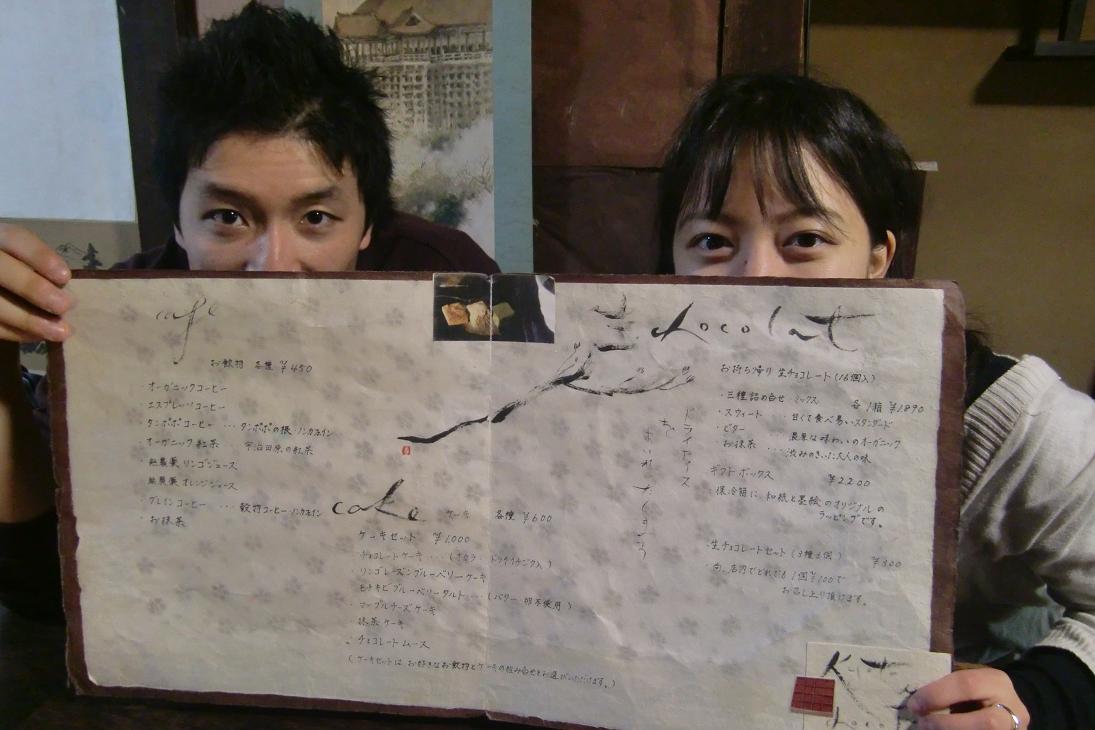 cafe
お飲物 各種 ¥450
オーガニックコーヒー
エスプレッソコーヒー
・タンポポコーヒー ・・・タンポポの根・ノンカフェイン
オーガニック紅茶 宇治田原の紅茶
・無農薬 リンゴジュース
無農薬 オレンジジュース
・グレインコーヒー ・・・ 穀物コーヒー・ノンカフェイン
お抹茶
cake ケーキ 各種 ¥600
ケーキセット ¥1,000
・チョコレートケーキ
・リンゴレーズンブルーベリーケーキ
ブルーベリータルト ・・・ (バター 卵不使用)
・マーブルチーズケーキ
抹茶ケーキ
・チョコレートムース
(ケーキセットは お好きなお飲物とケーキの組み合わせをお選びいただけます。)
生 chocolat
お持ち帰り 生チョコレート (16個入)
・三種詰め合せ ミックス 各1箱 ¥1,890
・スウィート ・・・ 甘くて食べ易いスタンダード
・ビター ・・・ 濃厚な味わいのオーガニック
・お抹茶 ・・・ 渋みのきいた大人の味
ギフトボックス ¥2,200
保冷箱に、和紙と墨絵のオリジナルの
ラッピングです。
・生チョコレートセット (3種3個) ¥300
・尚、店内でどれでも1個¥100で
お召し上り頂けます。